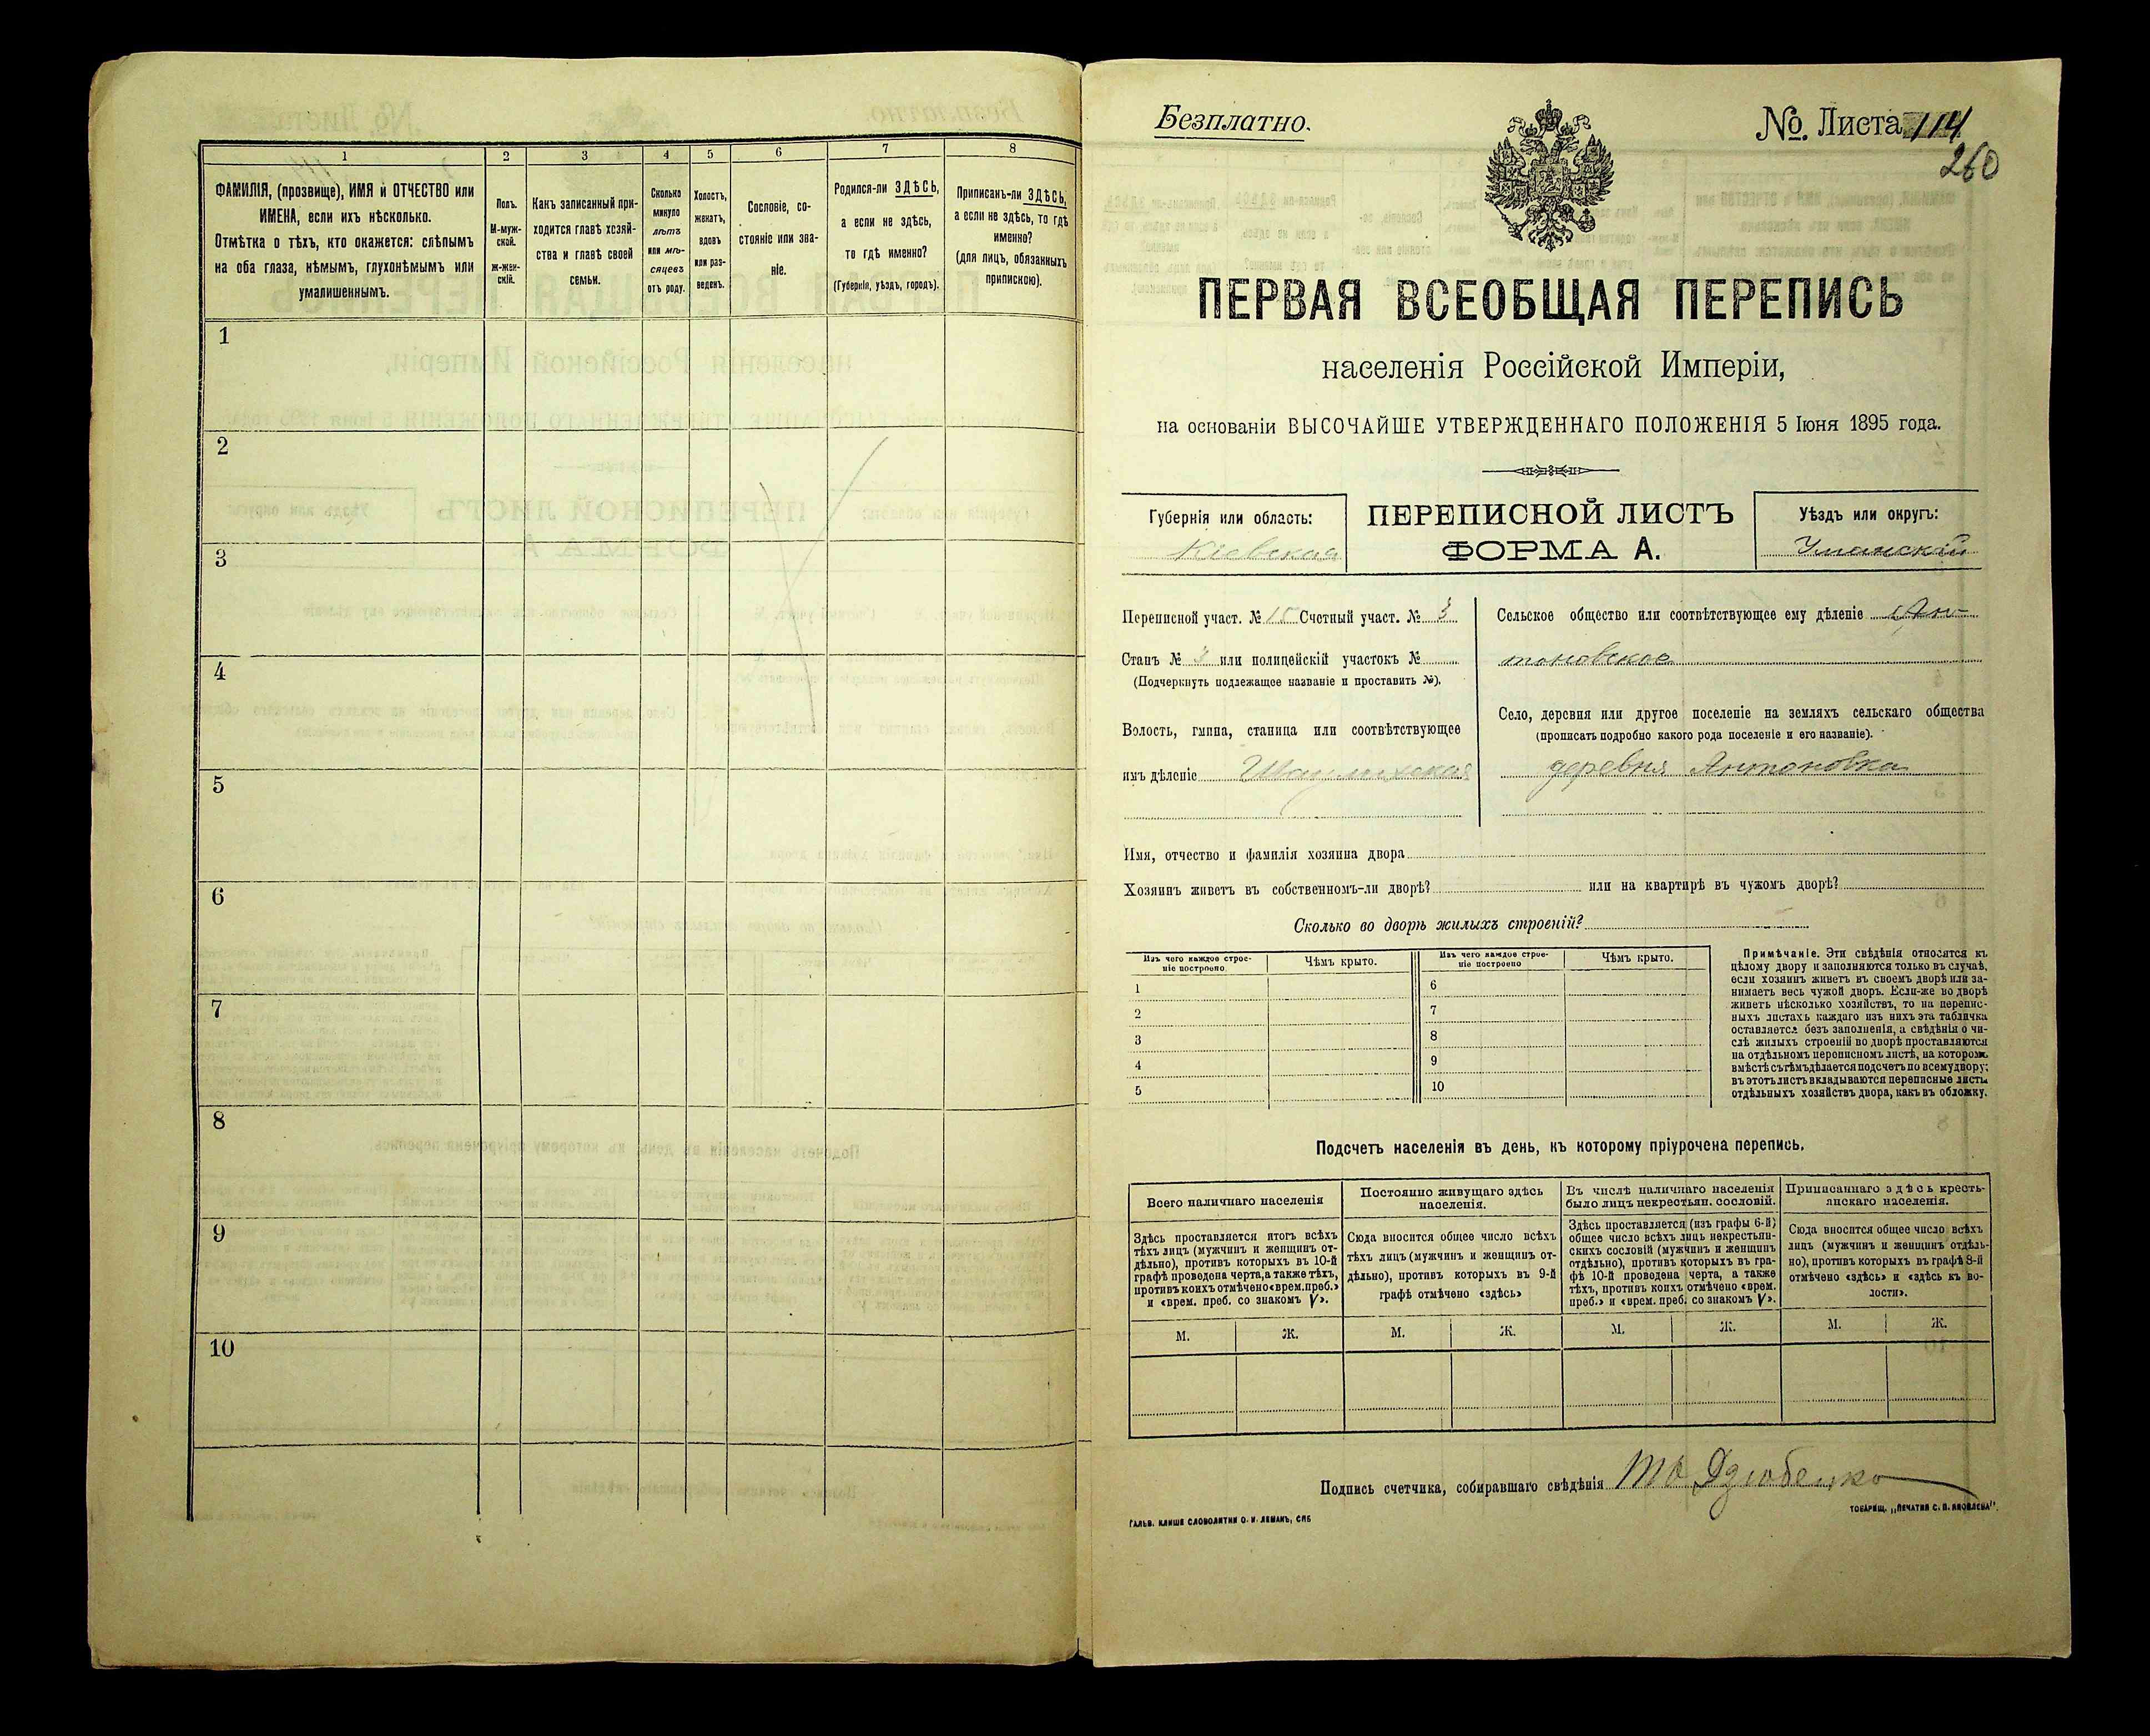 1
2
3
4
5
6
7
8
ФАМИЛІЯ, (прозвище), ИМЯ и ОТЧЕСТВО или
ИМЕНА, если ихъ нѣсколько.
Отмѣтка о тѣхъ, кто окажется: слѣпымъ
на оба глаза, нѣмымъ, глухонѣмымъ или
умалишеннымъ.
Полъ.
М-муж-
ской.
Ж-жен-
скій.
Какъ записанный при-
ходится главѣ хозяй-
ства и главѣ своей
семьи.
Сколько
минуло
лѣтъ
или мѣ-
сяцевъ
отъ роду.
Холостъ,
женатъ,
вдовъ
или раз-
веденъ.
Сословіе, со-
стояніе или зва-
ніе.
Родился-ли ЗДѢСЬ,
а если не здѣсь,
то гдѣ именно?
(Губернія, уѣздъ, городъ).
Приписанъ-ли ЗДѢСЬ,
а если не здѣсь, то гдѣ
именно?
(для лицъ, обязанныхъ
припискою).
1
2
3
4
5
6
7
8
9
10
Безплатно.
№. Листа 114
260
ПЕРВАЯ ВСЕОБЩАЯ ПЕРЕПИСЬ
населенія Россійской Имперіи,
на основаніи ВЫСОЧАЙШЕ УТВЕРЖДЕННАГО ПОЛОЖЕНІЯ 5 Іюня 1895 года.
Губернія или область:
Кіевская
ПЕРЕПИСНОЙ ЛИСТЪ
ФОРМА А.
Уѣздъ или округъ:
Уманскій
Переписной участ. № 15 Счетный участ. № 3
Станъ № 3 или полицейскій участокъ №
(Подчеркнуть подлежащее названіе и проставить №).
Волость, гмина, станица или соотвѣтствующее
имъ дѣленіе
Сельское общество или соотвѣтствующее ему дѣленіе Ан-
тоновское
Село, деревня или другое поселеніе на земляхъ сельскаго общества
(прописать подробно какого рода поселеніе и его названіе).
деревня Антоновка
Имя, отчество и фамилія хозяина двора
Хозяинъ живетъ въ собственномъ-ли дворѣ? или на квартирѣ въ чужомъ дворѣ?
Сколько во дворѣ жилыхъ строеній?
Изъ чего каждое строе-
ніе построено
Чѣмъ крыто.
Изъ чего каждое строе-
ніе построено
Чѣмъ крыто.
1
2
3
4
5
6
7
8
9
10
Примѣчаніе. Эти свѣдѣнія относятся къ
цѣлому двору и заполняются только въ случаѣ,
если хозяинъ живетъ въ своемъ дворѣ или за-
нимаетъ весь чужой дворъ. Если-же во дворѣ
живетъ нѣсколько хозяйствъ, то на перепис-
ныхъ листахъ каждаго изъ нихъ эта табличка
оставляется безъ заполненія, а свѣдѣнія о чи-
слѣ жилыхъ строеній во дворѣ проставляются
на отдѣльномъ переписномъ листѣ, на которомъ
вмѣстѣ съ тѣмъ дѣлается подсчетъ по всему двору;
въ этотъ листъ вкладываются переписные листы
отдѣльныхъ хозяйствъ двора, какъ въ обложку.
Подсчетъ населенія въ день, къ которому пріурочена перепись.
Всего наличнаго населенія
Здѣсь проставляется итогъ всѣхъ
тѣхъ лицъ (мужчинъ и женщинъ от-
дѣльно), противъ которыхъ въ 10-й
графѣ проведена черта, а также тѣхъ,
противъ коихъ отмѣчено «врем. преб.»
и «врем. преб. со знакомъ V».
Постоянно живущаго здѣсь
населенія.
Сюда вносится общее число всѣхъ
тѣхъ лицъ (мужчинъ и женщинъ от-
дѣльно), противъ которыхъ въ 9-й
графѣ отмѣчено «здѣсь»
Въ числѣ наличнаго населенія
было лицъ некрестьян. сословій.
Здѣсь проставляется (изъ графы 6-й)
общее число всѣхъ лицъ некрестьян-
скихъ сословій (мужчинъ и женщинъ
отдѣльно), противъ которыхъ въ гра-
фѣ 10-й проведена черта, а также
тѣхъ, противъ коихъ отмѣчено «врем.
преб.» и «врем. преб. со знакомъ V».
Приписаннаго здѣсь кресть-
янскаго населенія.
Сюда вносится общее число всѣхъ
лицъ (мужчинъ и женщинъ отдѣль-
но), противъ которыхъ въ графѣ 8-й
отмѣчено «здѣсь» и «здѣсь къ во-
лости».
М.
Ж.
М.
Ж.
М.
Ж.
М.
Ж.
Подпись счетчика, собиравшаго свѣдѣнія Дзюбенко
ГАЛЬВ. КЛИШЕ СЛОВОЛИТНИ О. И. ЛЕМАНЪ, СПБ
ТОВАРИЩ. „ПЕЧАТНЯ С. П. ЯКОВЛЕВА".